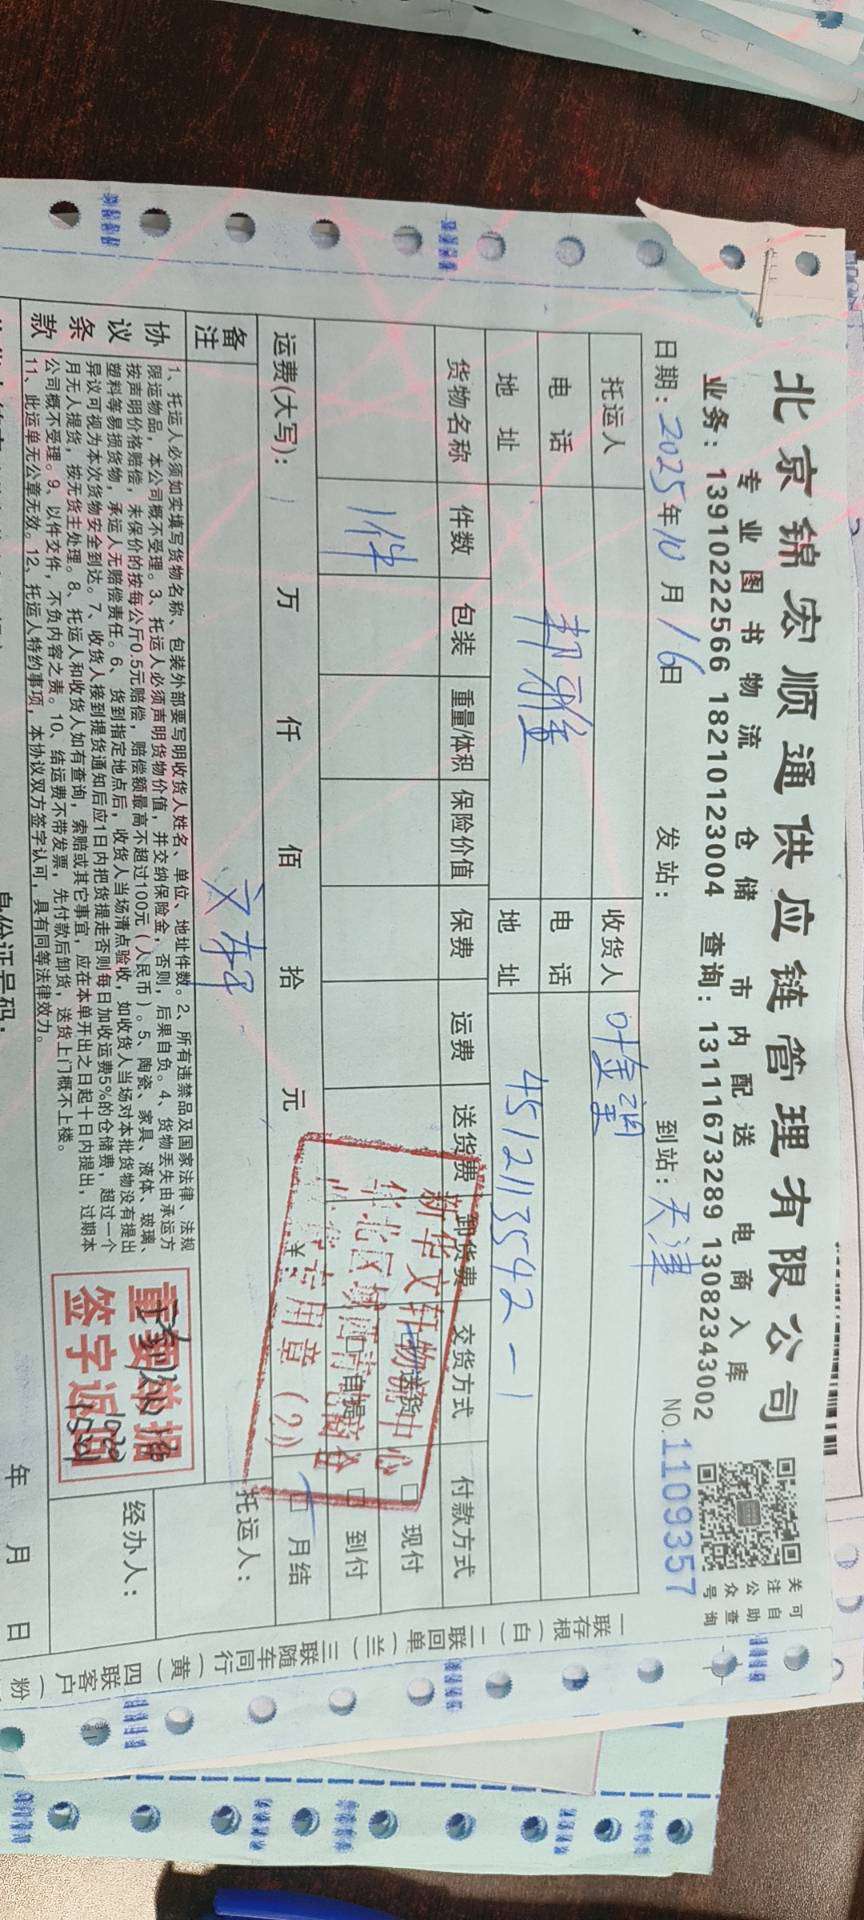 北京锦宏顺通供应链管理有限公司
专业图书物流 仓储 市内配送 电商入库
业务：13910222566 18210123004 查询：13111673289 13082343002
关注公众号
可自助查询
日期：2025年10月16日 发站： 到站：天津 NO.1109357
托运人 收货人 叶金澜
电话 电话
地址 地址 4512113542-1
货物名称 件数 包装 重量/体积 保险价值 保费 运费 送货费 卸货费 交货方式 付款方式
1件 送货 现付
自提 到付
运费(大写)： 万 仟 佰 拾 元 ￥： 月结
新华文轩物流中心
华北区域
专用章(2)
备注 文轩
托运人：
协议条款
1、托运人必须如实填写货物名称、包装外部要写明收货人姓名、单位、地址件数。2、所有违禁品及国家法律、法规
限运物品，本公司概不受理。3、托运人必须声明货物价值，并交纳保险金，否则，后果自负。4、货物丢失由承运方
按声明价格赔偿，未保价的按每公斤0.5元赔偿，赔偿额最高不超过100元（人民币）。5、陶瓷、家具、液体、玻璃、
塑料等易损货物，承运人无赔偿责任。6、货到指定地点后，收货人当场清点验收，如收货人当场对本批货物没有提出
异议可视为本次货物安全到达。7、收货人接到提货通知后应1日内把货提走否则每日加收运费5%的仓储费，超过一个
月无人提货，按无货主处理。8、托运人和收货人如有查询，索赔或其它事宜，应在本单开出之日起十日内提出，过期本
公司概不受理。9、以件交件，不负内容之责。10、结运费不带发票，先付款后卸货，送货上门概不上楼。
11、此运单无公章无效。12、托运人特约事项，本协议双方签字认可，具有同等法律效力。
重要单据
签字返回
经办人：
身份证号码：
年 月 日
一联存根（白）二联回单（兰）三联随车同行（黄）四联客户（粉